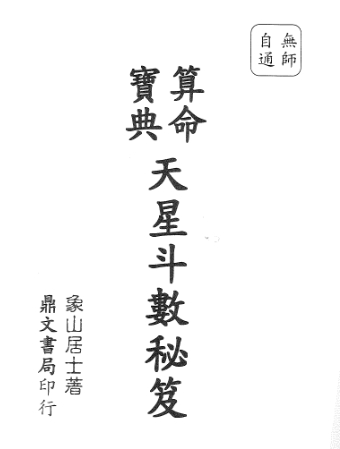 無師
自通
算命
寶典
天星斗數秘笈
象山居士著
鼎文書局印行